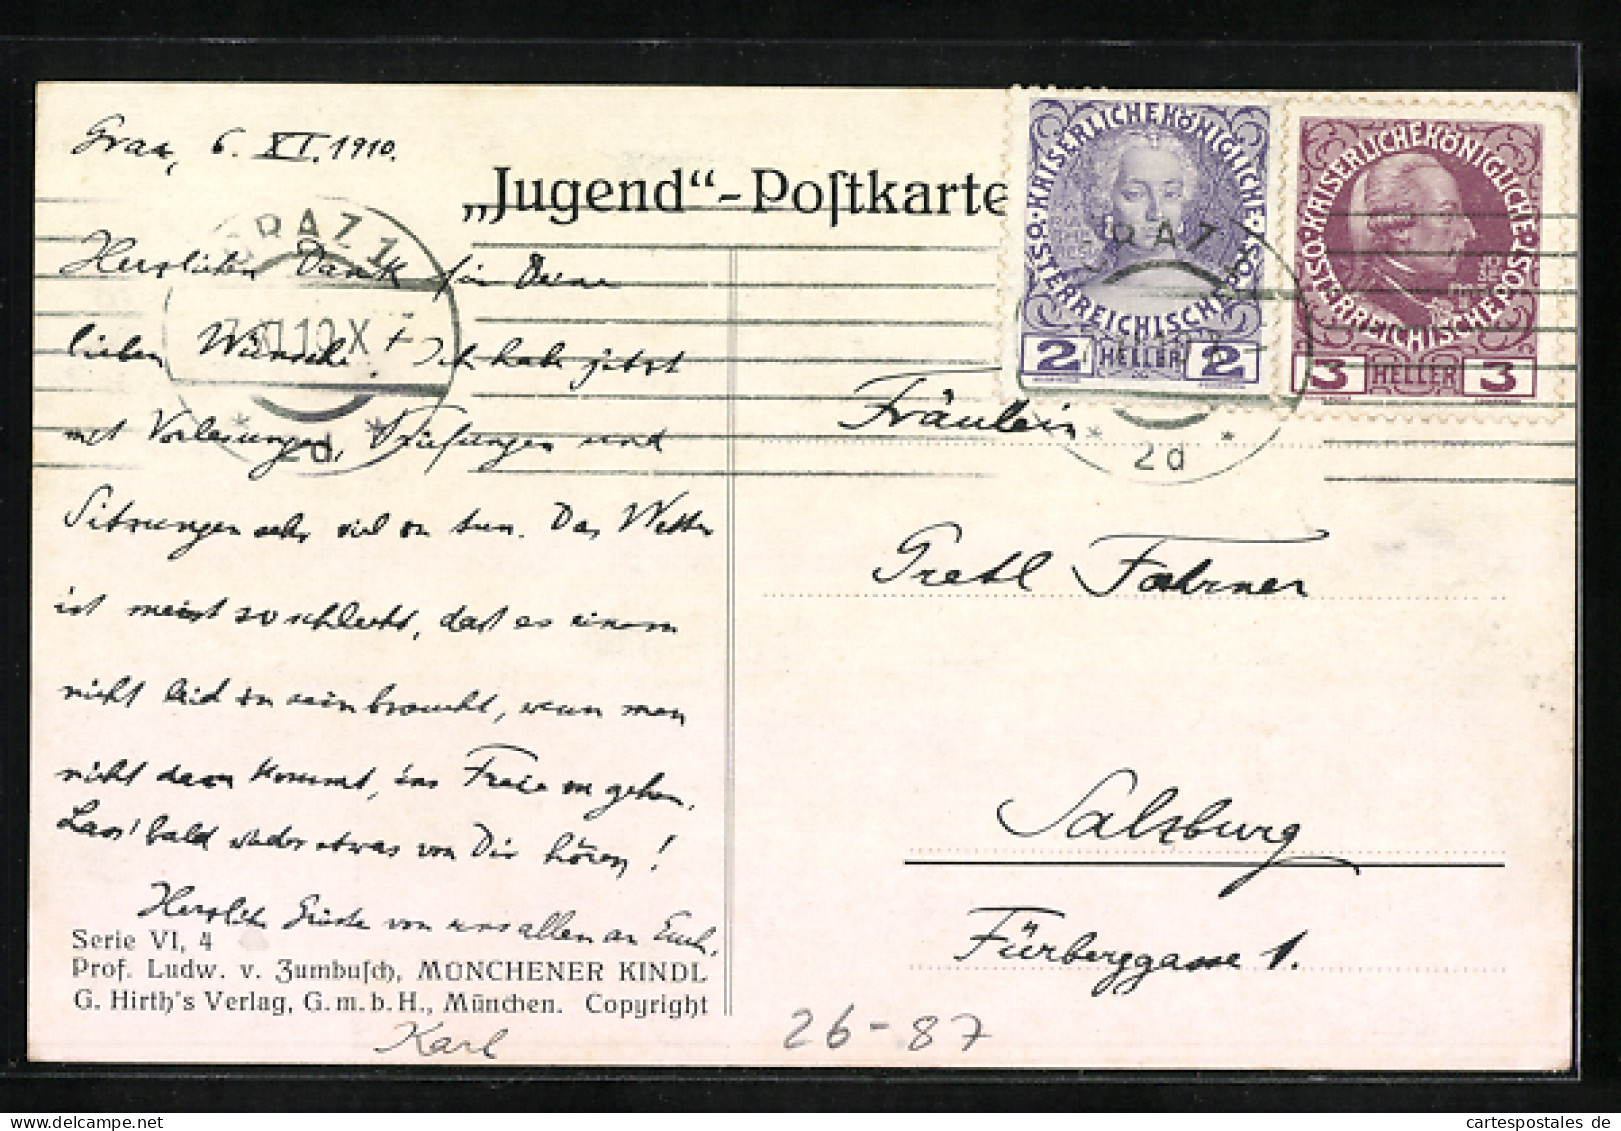 Graz, 6. XI. 1910.
„Jugend“-Poſtkarte
Herzlichen Dank für Deine
lieben Wünsche! Ich habe jetzt
mit Vorlesungen, Prüfungen und
Sitzungen sehr viel zu tun. Das Wetter
ist meist so schlecht, daß es einem
nicht leid zu sein braucht, wenn man
nicht dazu kommt, ins Freie zu gehen.
Lass' bald wieder etwas von Dir hören!
Herzliche Grüße von uns allen an Euch,
Karl
Serie VI, 4
Prof. Ludw. v. Zumbuſch, MÜNCHENER KINDL
G. Hirth's Verlag, G.m.b.H., München. Copyright
KAISERLICHEKÖNIGLICHE ÖSTERREICHISCHE POST
2 HELLER 2
KAISERLICHEKÖNIGLICHE ÖSTERREICHISCHE POST
3 HELLER 3
GRAZ 1
2d
GRAZ
2d
Fräulein
Gretl Fahrner
Salzburg
Fürberggasse 1.
26-87
cartespostales de